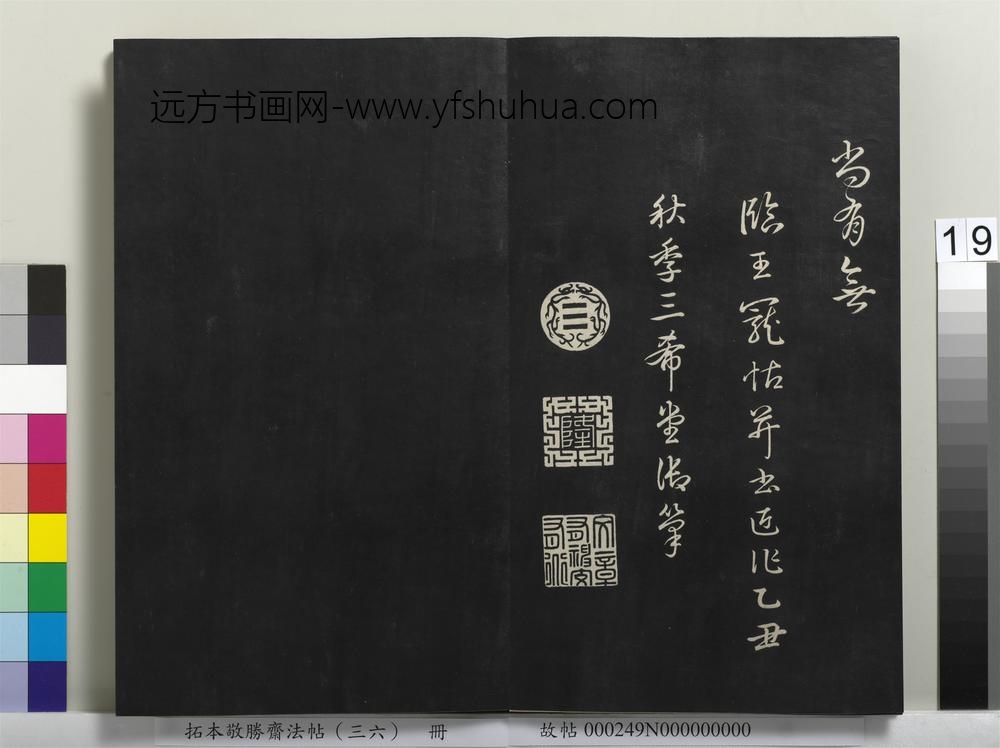 远方书画网-www.yfshuhua.com
尚有無
臨王寵帖并书近作乙丑
秋季三希堂御筆
乾
隆
19
拓本敬勝齋法帖（三六） 冊
故帖000249N000000000